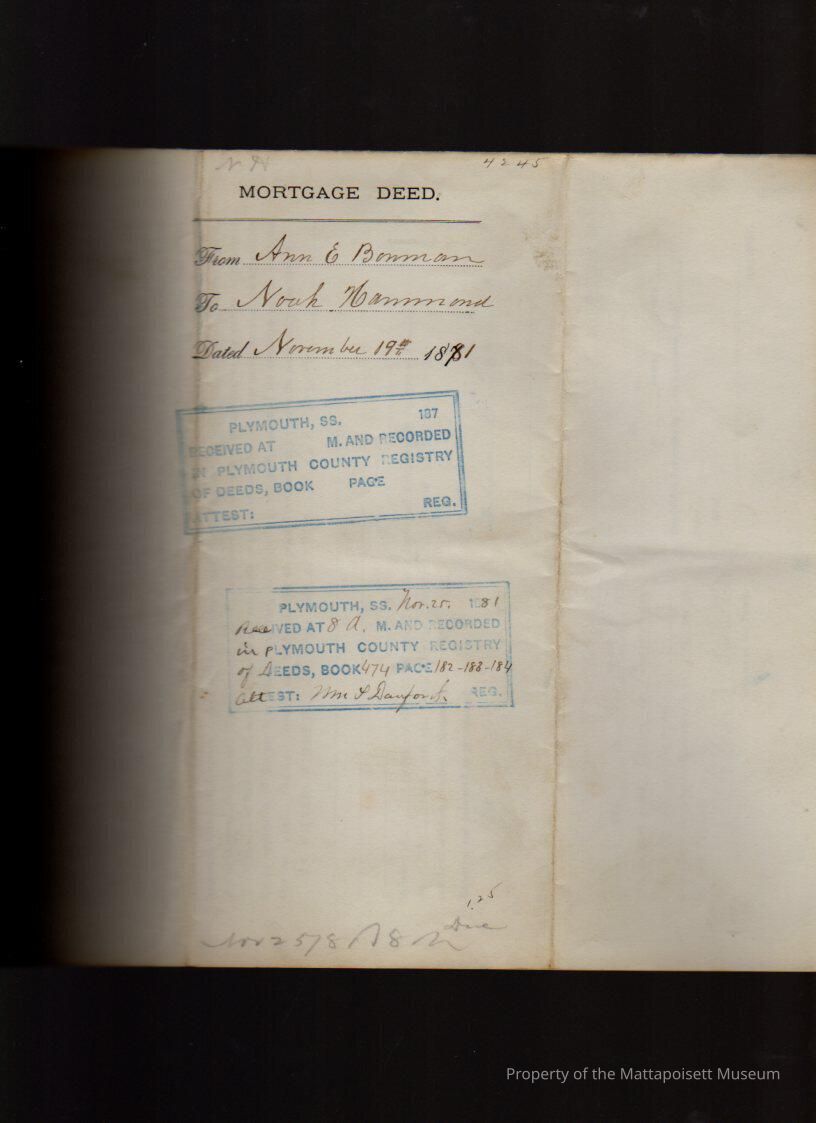 N H
4245
MORTGAGE DEED.
From Ann E Bowman
To Noah Hammond
Dated November 19th 1881
PLYMOUTH, SS. 187
RECEIVED AT M. AND RECORDED
IN PLYMOUTH COUNTY REGISTRY
OF DEEDS, BOOK PAGE
ATTEST: REG.
PLYMOUTH, SS. Nov. 25, 1881
Received AT 8 A. M. AND RECORDED
in PLYMOUTH COUNTY REGISTRY
of DEEDS, BOOK 474 PAGE 182-183-184
attEST: Wm S Danforth REG.
1.25
Due
Nov 25/8
Property of the Mattapoisett Museum